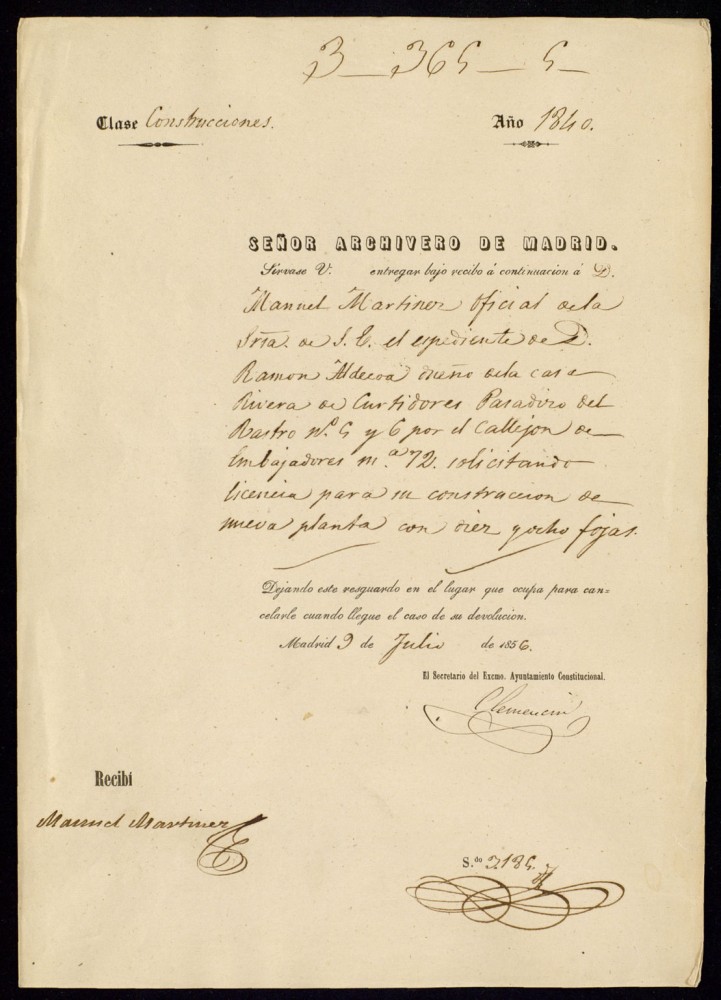 3 — 365 — 5 —
Clase Construcciones.
Año 1840.
SEÑOR ARCHIVERO DE MADRID.
Sírvase V. entregar bajo recibo á continuacion á D.
Manuel Martinez Oficial dela
Sría. de S. E. el espediente de D.
Ramon Aldecoa dueño dela casa
Rivera de Curtidores Pasadizo del
Rastro nº. 5 y 6 por el Callejon de
Embajadores m.ª 72. solicitando
licencia para su construccion de
nueva planta con diez y ocho fojas.
Dejando este resguardo en el lugar que ocupa para can=
celarle cuando llegue el caso de su devolucion.
Madrid 9 de Julio de 1856.
El Secretario del Excmo. Ayuntamiento Constitucional.
Clemencin
Recibí
Manuel Martinez
S.do 2185.